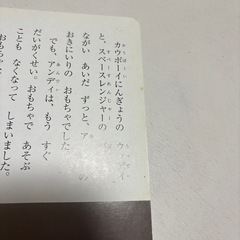 カウボーイにんぎょうの ウッディ
と、スペースレンジャーの
ながい あいだ ずっと、ア
おきにいりの おもちゃでした
でも、アンディは、もう すぐ
だいがくせい。おもちゃで あそぶ
ことも なくなって しまいました。
おもちゃ